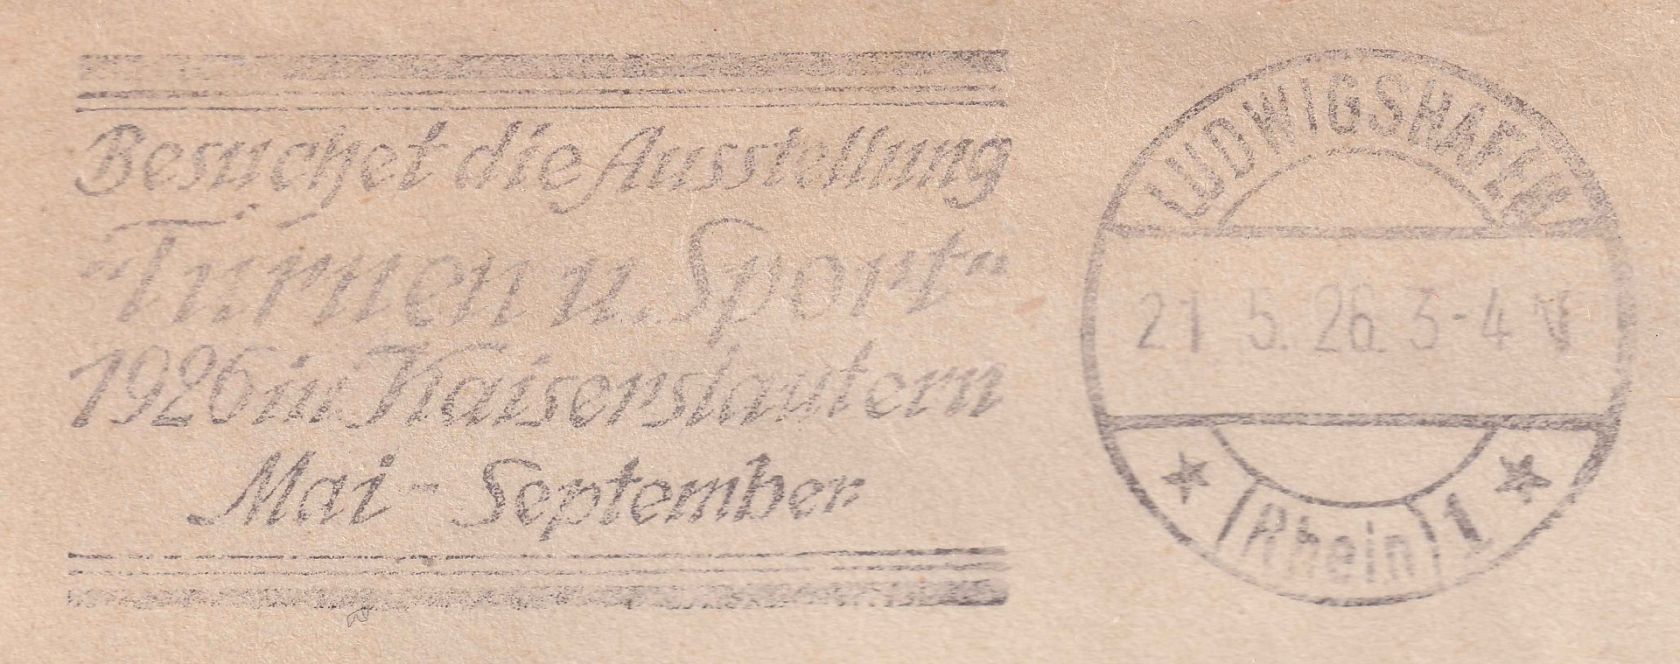 Besuchet die Ausstellung
"Turnen u. Sport"
1926 in Kaiserslautern
Mai - September
LUDWIGSHAFEN
21 5. 26. 3-4 N
* (Rhein) 1 *